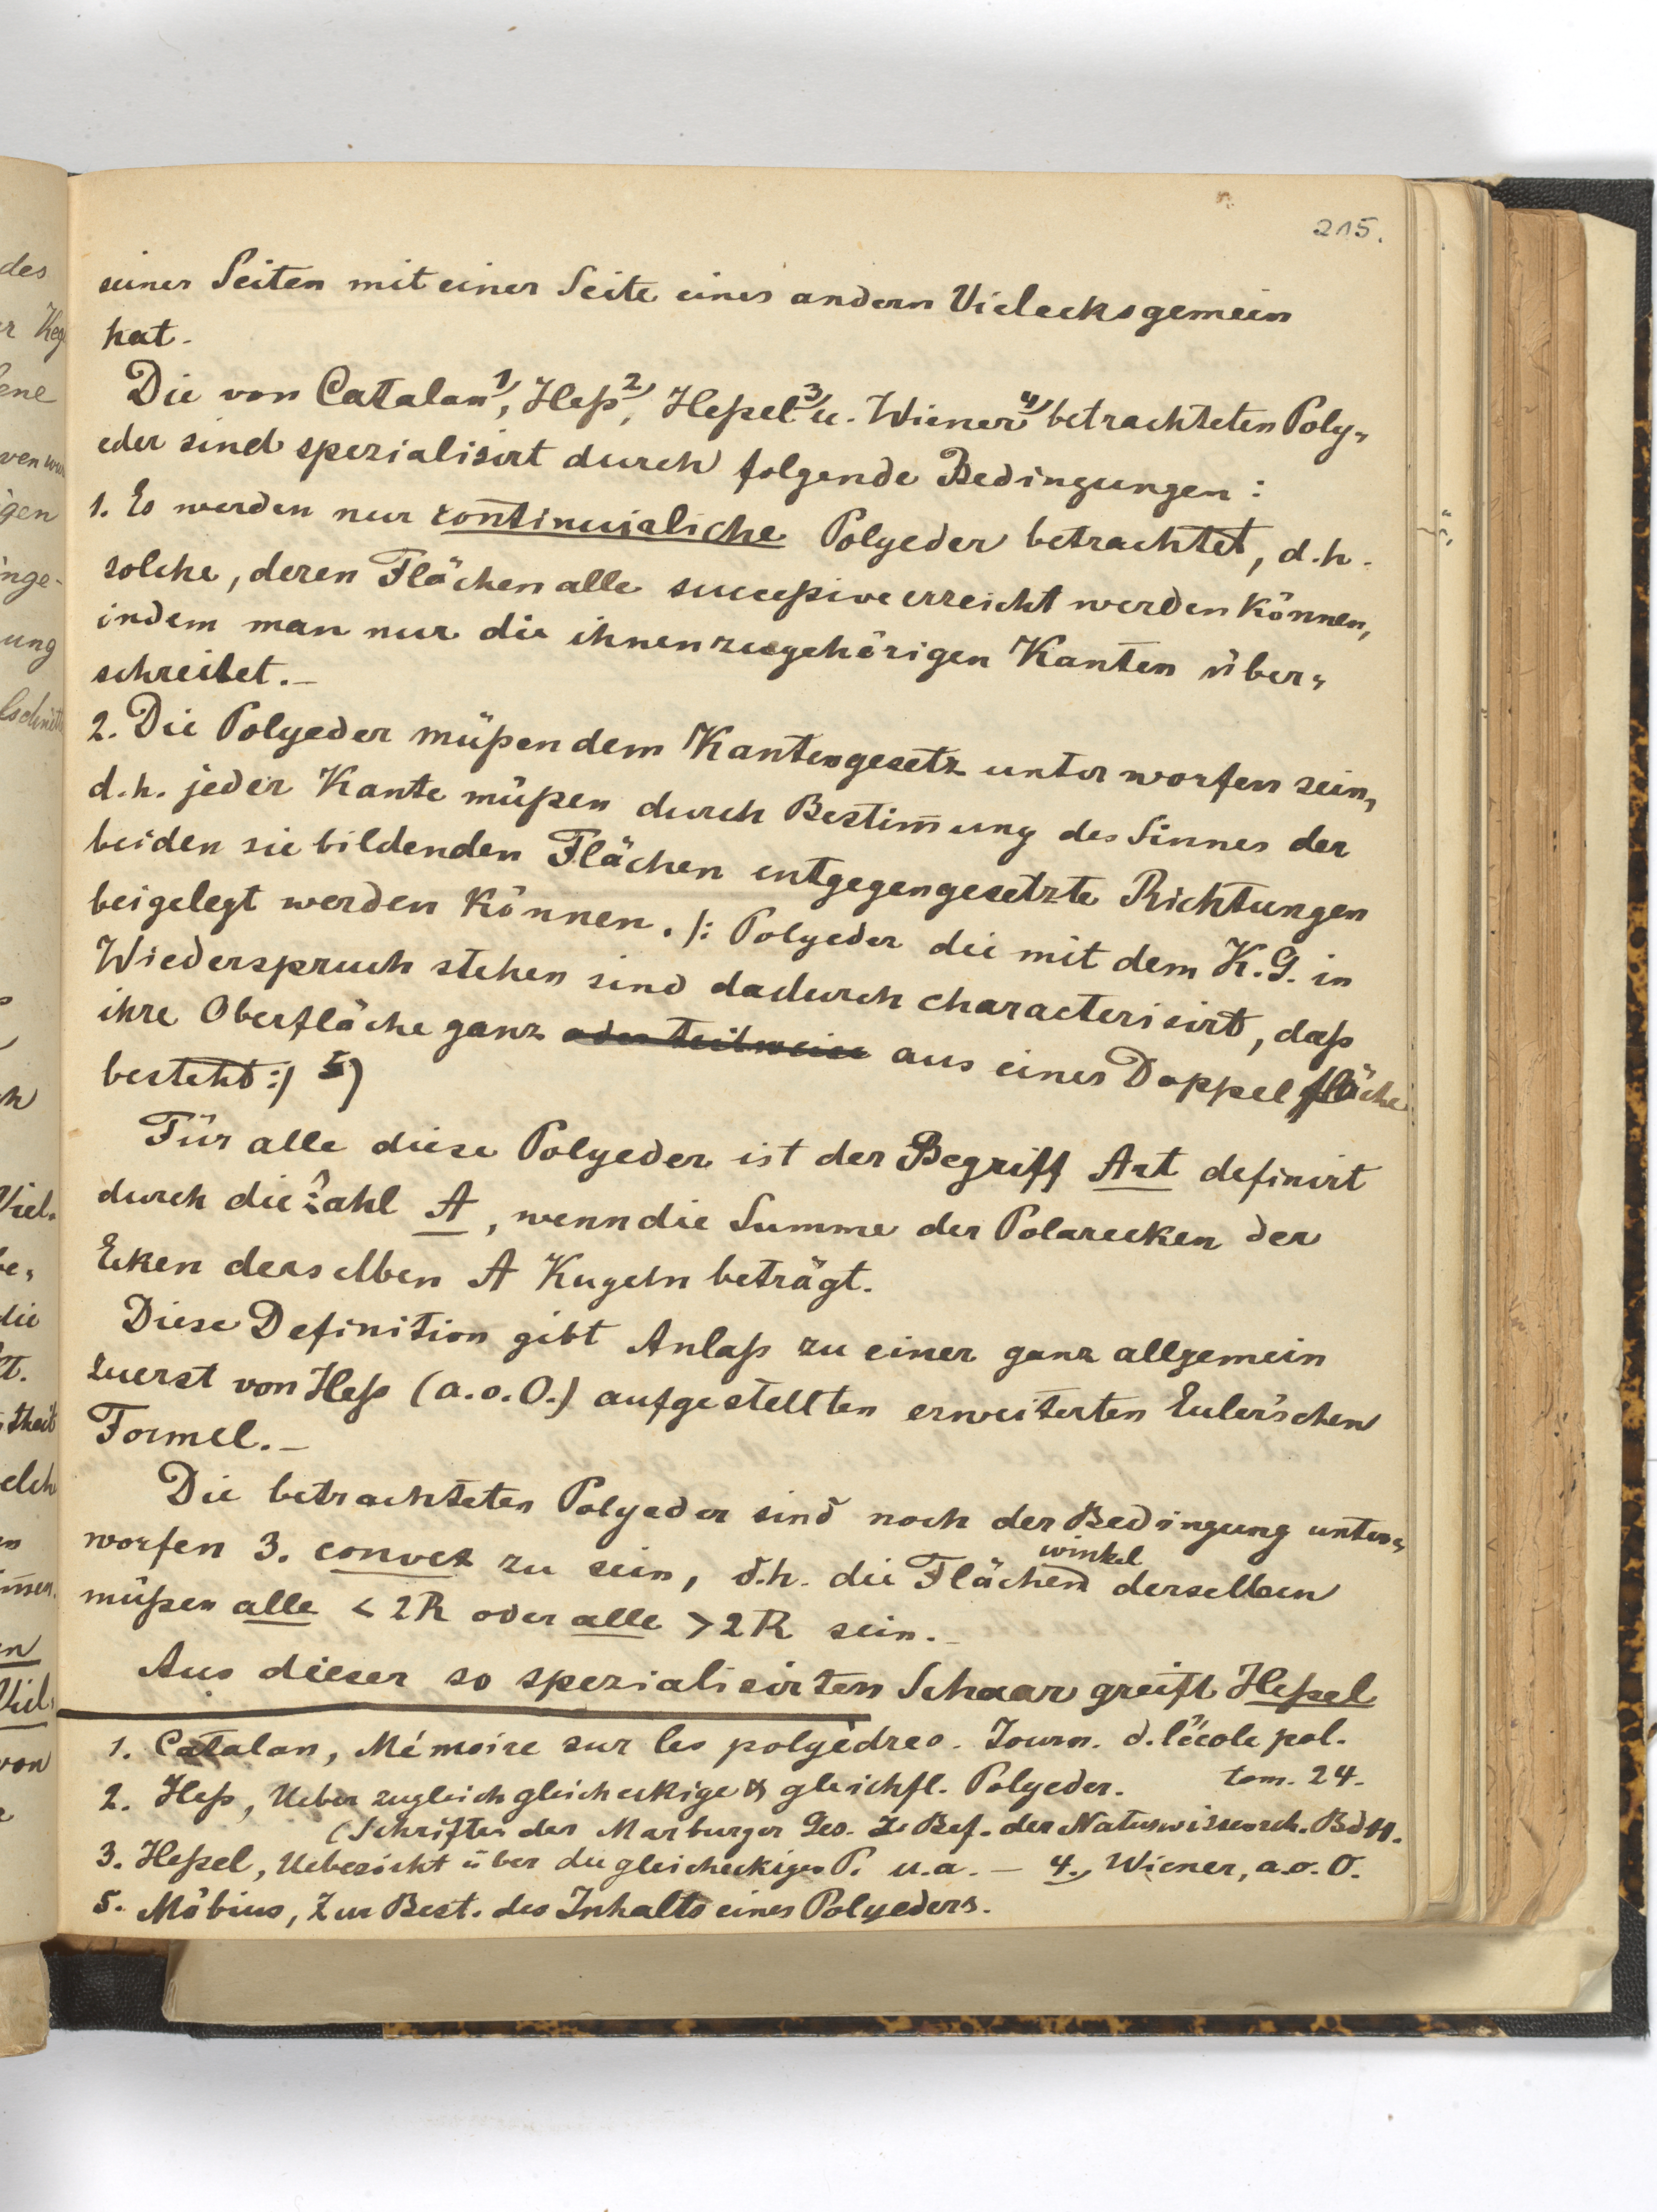 215.
seiner Seiten mit einer Seite eines andern Vielecks gemein
hat.
Die von Catalan 1), Heß 2), Heßel 3) u. Wiener 4) betrachteten Poly„
eder sind spezialisirt durch folgende Bedingungen:
1. Es werden nur continuirliche Polyeder betrachtet, d.h.
solche, deren Flächen alle succeßive erreicht werden können,
indem man nur die ihnen zugehörigen Kanten über„
schreitet.–
2. Die Polyeder müßen dem Kantengesetz unterworfen sein,
d.h. jeder Kante müßen durch Bestim̅ung des Sinnes der
beiden sie bildenden Flächen entgegengesetzte Richtungen
beigelegt werden können. /: Polyeder die mit dem K.G. in
Wiederspruch stehen sind dadurch characterisirt, daß
ihre Oberfläche ganz oder teilweise aus einer Doppelfläche
besteht :/ 5)
Für alle diese Polyeder ist der Begriff Art definirt
durch die Zahl A, wenn die Summe der Polarecken der
Ecken derselben A Kugeln beträgt.
Diese Definition gibt Anlaß zu einer ganz allgemein
zuerst von Heß (a.o.O.) aufgestellten erweiterten Euler'schen
Formel.–
Die betrachteten Polyeder sind noch der Bedingung unter„
worfen 3. convex zu sein, d.h. die Flächenwinkel derselben
müßen alle < 2R oder alle > 2R sein.–
Aus dieser so spezialisirten Schaar greift Heßel
1. Catalan, Mémoire sur les polyèdres. Journ. d. l'école pol.
tom. 24.
2. Heß, Ueber zugleich gleicheckige & gleichfl. Polyeder.
(Schriften der Marburger Ges. z. Bef. der Naturwissensch. Bd 11.
3. Heßel, Uebersicht über die gleicheckigen P. u.a. – 4., Wiener, a.o.O.
5. Möbius, Zur Best. des Inhalts eines Polyeders.